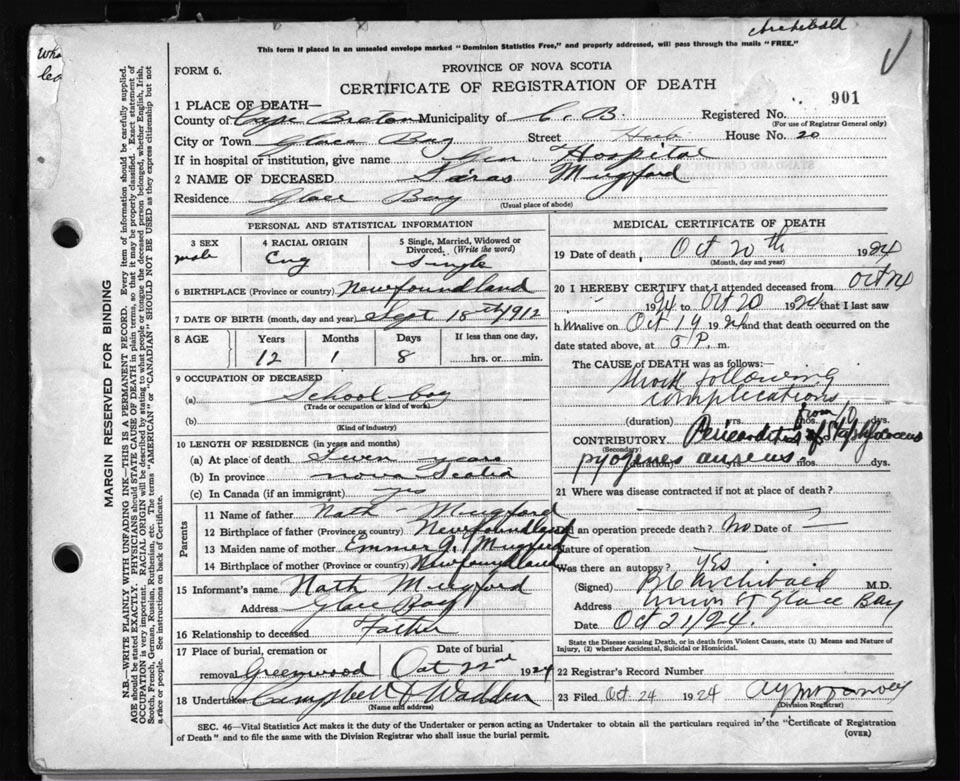 Archibald
This form if placed in an unsealed envelope marked "Dominion Statistics Free," and properly addressed, will pass through the mails "FREE."
PROVINCE OF NOVA SCOTIA
FORM 6.
CERTIFICATE OF REGISTRATION OF DEATH
901
1 PLACE OF DEATH—
County of Cape Breton Municipality of C. B. Registered No.
(For use of Registrar General only)
City or Town Glace Bay Street Hub House No. 20
If in hospital or institution, give name Gen Hospital
2 NAME OF DECEASED Mugford
Residence Glace Bay
(Usual place of abode)
PERSONAL AND STATISTICAL INFORMATION
3 SEX
male
4 RACIAL ORIGIN
Eng
5 Single, Married, Widowed or Divorced. (Write the word)
Single
6 BIRTHPLACE (Province or country) Newfoundland
7 DATE OF BIRTH (month, day and year) Sept 18th 1912
8 AGE
Years Months Days If less than one day,
12 1 8 hrs. or min.
9 OCCUPATION OF DECEASED
(a) School boy
(Trade or occupation or kind of work)
(b)
(Kind of industry)
10 LENGTH OF RESIDENCE (in years and months)
(a) At place of death Seven years
(b) In province Nova Scotia
(c) In Canada (if an immigrant) yes
Parents
11 Name of father Nath - Mugford
12 Birthplace of father (Province or country) Newfoundland
13 Maiden name of mother Emmer J. Mugford
14 Birthplace of mother (Province or country) Newfoundland
15 Informant's name Nath Mugford
Address Glace Bay
16 Relationship to deceased Father
17 Place of burial, cremation or removal Greenwood
Date of burial
Oct 22nd 1924
18 Undertaker Campbell & Wadden
(Name and address)
MEDICAL CERTIFICATE OF DEATH
19 Date of death Oct 20th 1924
(Month, day and year)
20 I HEREBY CERTIFY that I attended deceased from Oct 14
1924 to Oct 20 1924 that I last saw
him alive on Oct 19 1924 and that death occurred on the
date stated above, at 5 P. m.
The CAUSE OF DEATH was as follows:
Shock following
complications
from
(duration) yrs. mos. 10 dys.
CONTRIBUTORY Pericarditis of Staphylococcus
(Secondary)
pyogenes aureus
(duration) mos. dys.
21 Where was disease contracted if not at place of death?
Did an operation precede death? No. Date of
Nature of operation
Was there an autopsy? yes
(Signed) Archibald M.D.
Address Union St Glace Bay
Date Oct 21/24.
State the Disease causing Death, or in death from Violent Causes, state (1) Means and Nature of Injury, (2) whether Accidental, Suicidal or Homicidal.
22 Registrar's Record Number
23 Filed Oct. 24 1924
(Division Registrar)
SEC. 46—Vital Statistics Act makes it the duty of the Undertaker or person acting as Undertaker to obtain all the particulars required in the "Certificate of Registration
of Death" and to file the same with the Division Registrar who shall issue the burial permit.
(OVER)
MARGIN RESERVED FOR BINDING
N.B.—WRITE PLAINLY WITH UNFADING INK—THIS IS A PERMANENT RECORD. Every item of information should be carefully supplied.
AGE should be stated EXACTLY. PHYSICIANS should STATE CAUSE OF DEATH in plain terms, so that it may be properly classified. Exact statement of
OCCUPATION is very important. RACIAL ORIGIN will be described by stating to what people or tongue the deceased person belonged, whether English, Irish,
Scotch, French, German, Russian, Ruthenian, etc. The terms "AMERICAN" or "CANADIAN" SHOULD NOT BE USED as they express citizenship but not
a race or people. See instructions on back of Certificate.